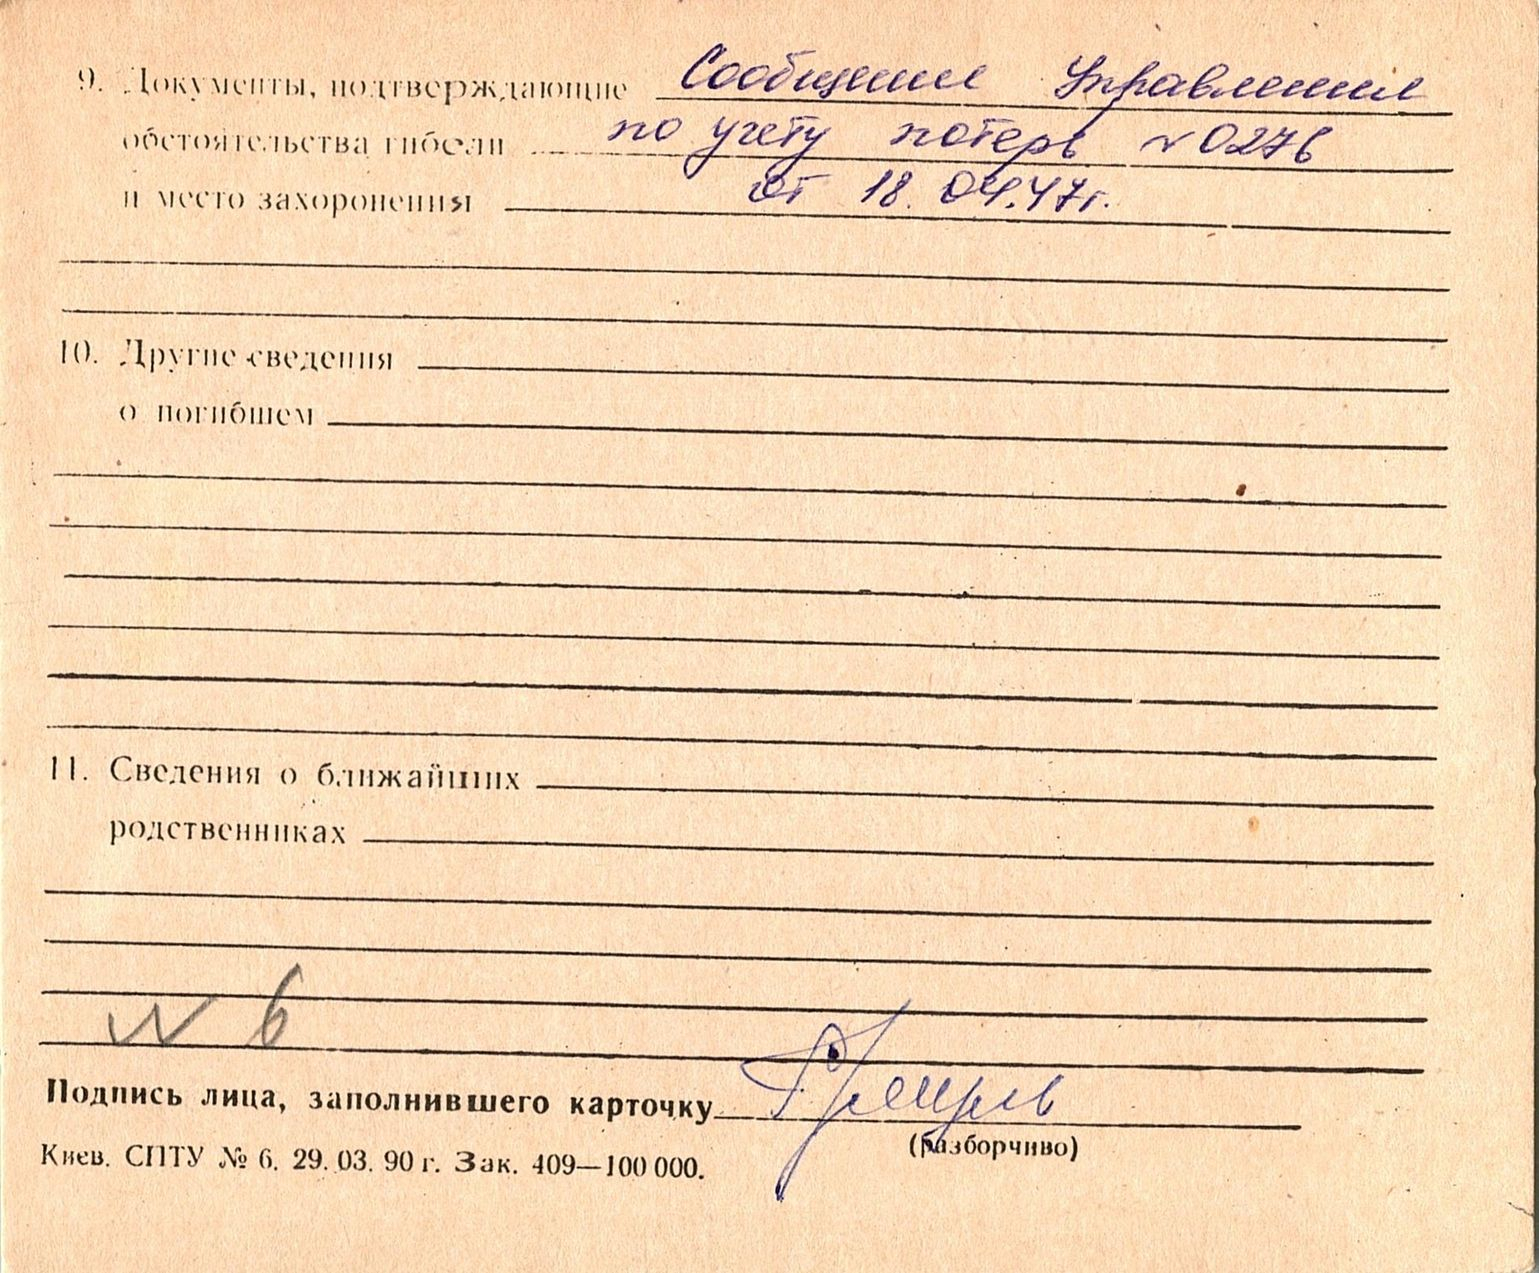 9. Документы, подтверждающие Сообщение Управления
обстоятельства гибели по учету потерь N 0276
и место захоронения от 18.04.47г.
10. Другие сведения
о погибшем
11. Сведения о ближайших
родственниках
N 6
Подпись лица, заполнившего карточку
(разборчиво)
Киев. СПТУ № 6. 29. 03. 90 г. Зак. 409—100 000.